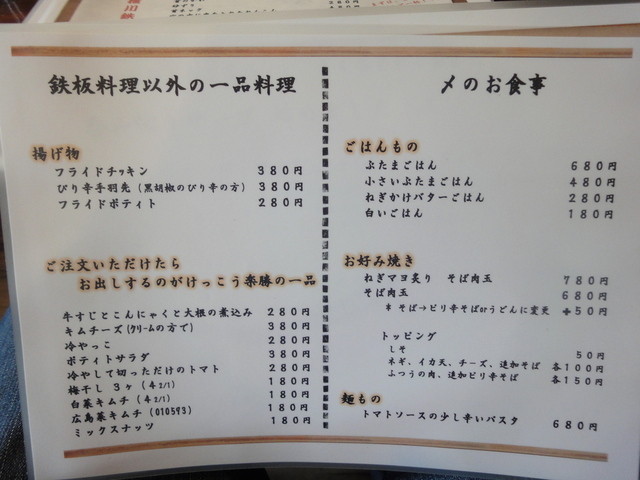 鉄板料理以外の一品料理
揚げ物
フライドチッキン 380円
ぴり辛手羽先 (黒胡椒のぴり辛の方) 380円
フライドポティト 280円
ご注文いただけたら
お出しするのがけっこう楽勝の一品
牛すじとこんにゃくと大根の煮込み 280円
キムチーズ (クリームの方で) 380円
冷やっこ 280円
ポティトサラダ 380円
冷やして切っただけのトマト 280円
梅干し 3ヶ (42/1) 180円
白菜キムチ (42/1) 180円
広島菜キムチ (010593) 180円
ミックスナッツ 180円
〆のお食事
ごはんもの
ぶたまごはん 680円
小さいぶたまごはん 480円
ねぎかけバターごはん 280円
白いごはん 180円
お好み焼き
ねぎマヨ炙り そば肉玉 780円
そば肉玉 680円
* そば→ピリ辛そばorうどんに変更 +50円
トッピング
しそ 50円
ネギ、イカ天、チーズ、追加そば 各100円
ふつうの肉、追加ピリ辛そば 各150円
麺もの
トマトソースの少し辛いパスタ 680円